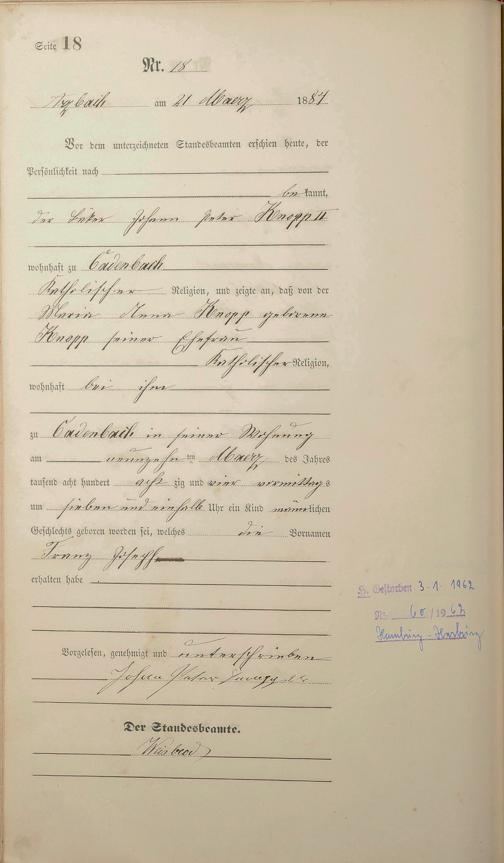 Seite 18
Nr. 18
Arzbach am 21 Maerz 1884
Vor dem unterzeichneten Standesbeamten erschien heute, der
Persönlichkeit nach
bekannt,
der Johann Peter Knopp II
wohnhaft zu Cadenbach
Katholischer Religion, und zeigte an, daß von der
Maria Anna Knopp geborene
Knopp seiner Ehefrau
Katholischer Religion,
wohnhaft bei ihm
zu Cadenbach in seiner Wohnung
am neunzehn ten Maerz des Jahres
tausend acht hundert acht zig und vier vormittags
um sieben und einhalb Uhr ein Kind männlichen
Geschlechts geboren worden sei, welches die Vornamen
Franz Joseph
erhalten habe
Gestorben 3.1.1962
Nr. 60/1962
Hamburg-Harburg
Vorgelesen, genehmigt und unterschrieben
Johann Peter Knopp
Der Standesbeamte.